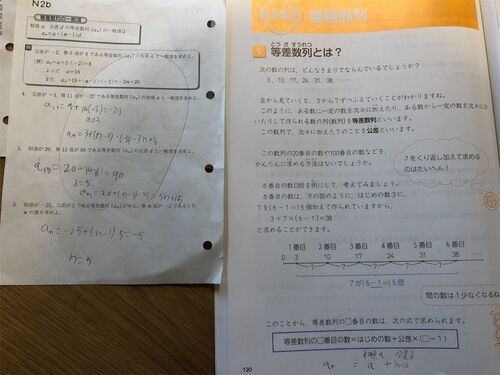 N2b
初項 a、公差 d の等差数列 {aₙ} の一般項は
aₙ = a + (n−1)d
例
公差が −2、第 6 項が 8 である等差数列 {aₙ} の初項と一般項を求めよ。
(解) a₆ = a + 5·(−2) = 8
よって a = 18
また aₙ = 18 + (n−1)·(−2) = −2n + 20
4. 公差が −3、第 11 項が −27 である等差数列 {aₙ} の初項と一般項を求めよ。
a=3
5. 初項が 20、第 15 項が 90 である等差数列 {aₙ} の公差 d と一般項を求めよ。
a₁₅ = 20 + 14d = 90
d = 5
aₙ = 20 + (n−1)·5 = 5n + 15
6. 初項が −25、公差が 5 である等差数列 {aₙ} がある。第 n 項が −5 であるとき、
n の値を求めよ。
aₙ = −25 + (n−1)·5 = −5
n = 5
等差数列
1 等差数列とは？
とう さ すうれつ
次の数の列は、どんなきまりでならんでいるでしょうか？
3、10、17、24、31、38、……
左から見ていくと、3 から 7 ずつふえていくことがわかりますね。
このように、ある数に一定の数を次々に加えたり、ある数から一定の数を次々に
ひいたりして作られる数の列(数列)を等差数列といいます。
この数列で、次々に加えた 7 のことを公差といいます。
この数列の 20 番目の数や 100 番目の数などを、
かんたんに求める方法はないでしょうか。
7 をくり返し加えて求める
のはたいへん！
6 番目の数(38)を例にして、考えてみましょう。
6 番目の数は、下の図のように、はじめの数 3 に、
7 を(6−1=)5 個加えて作られていますから、
3＋7×(6−1)＝38
と求めることができます。
1 番目 2 番目 3 番目 4 番目 5 番目 6 番目
0 3 10 17 24 31 38 ……
7 7 7 7 7
7 が(6−1＝)5 個
間の数は 1 少なくなるね
このことから、等差数列の□番目の数は、次の式で求められます。
等差数列の□番目の数＝はじめの数＋公差×(□−1)
初項a 公差d
130